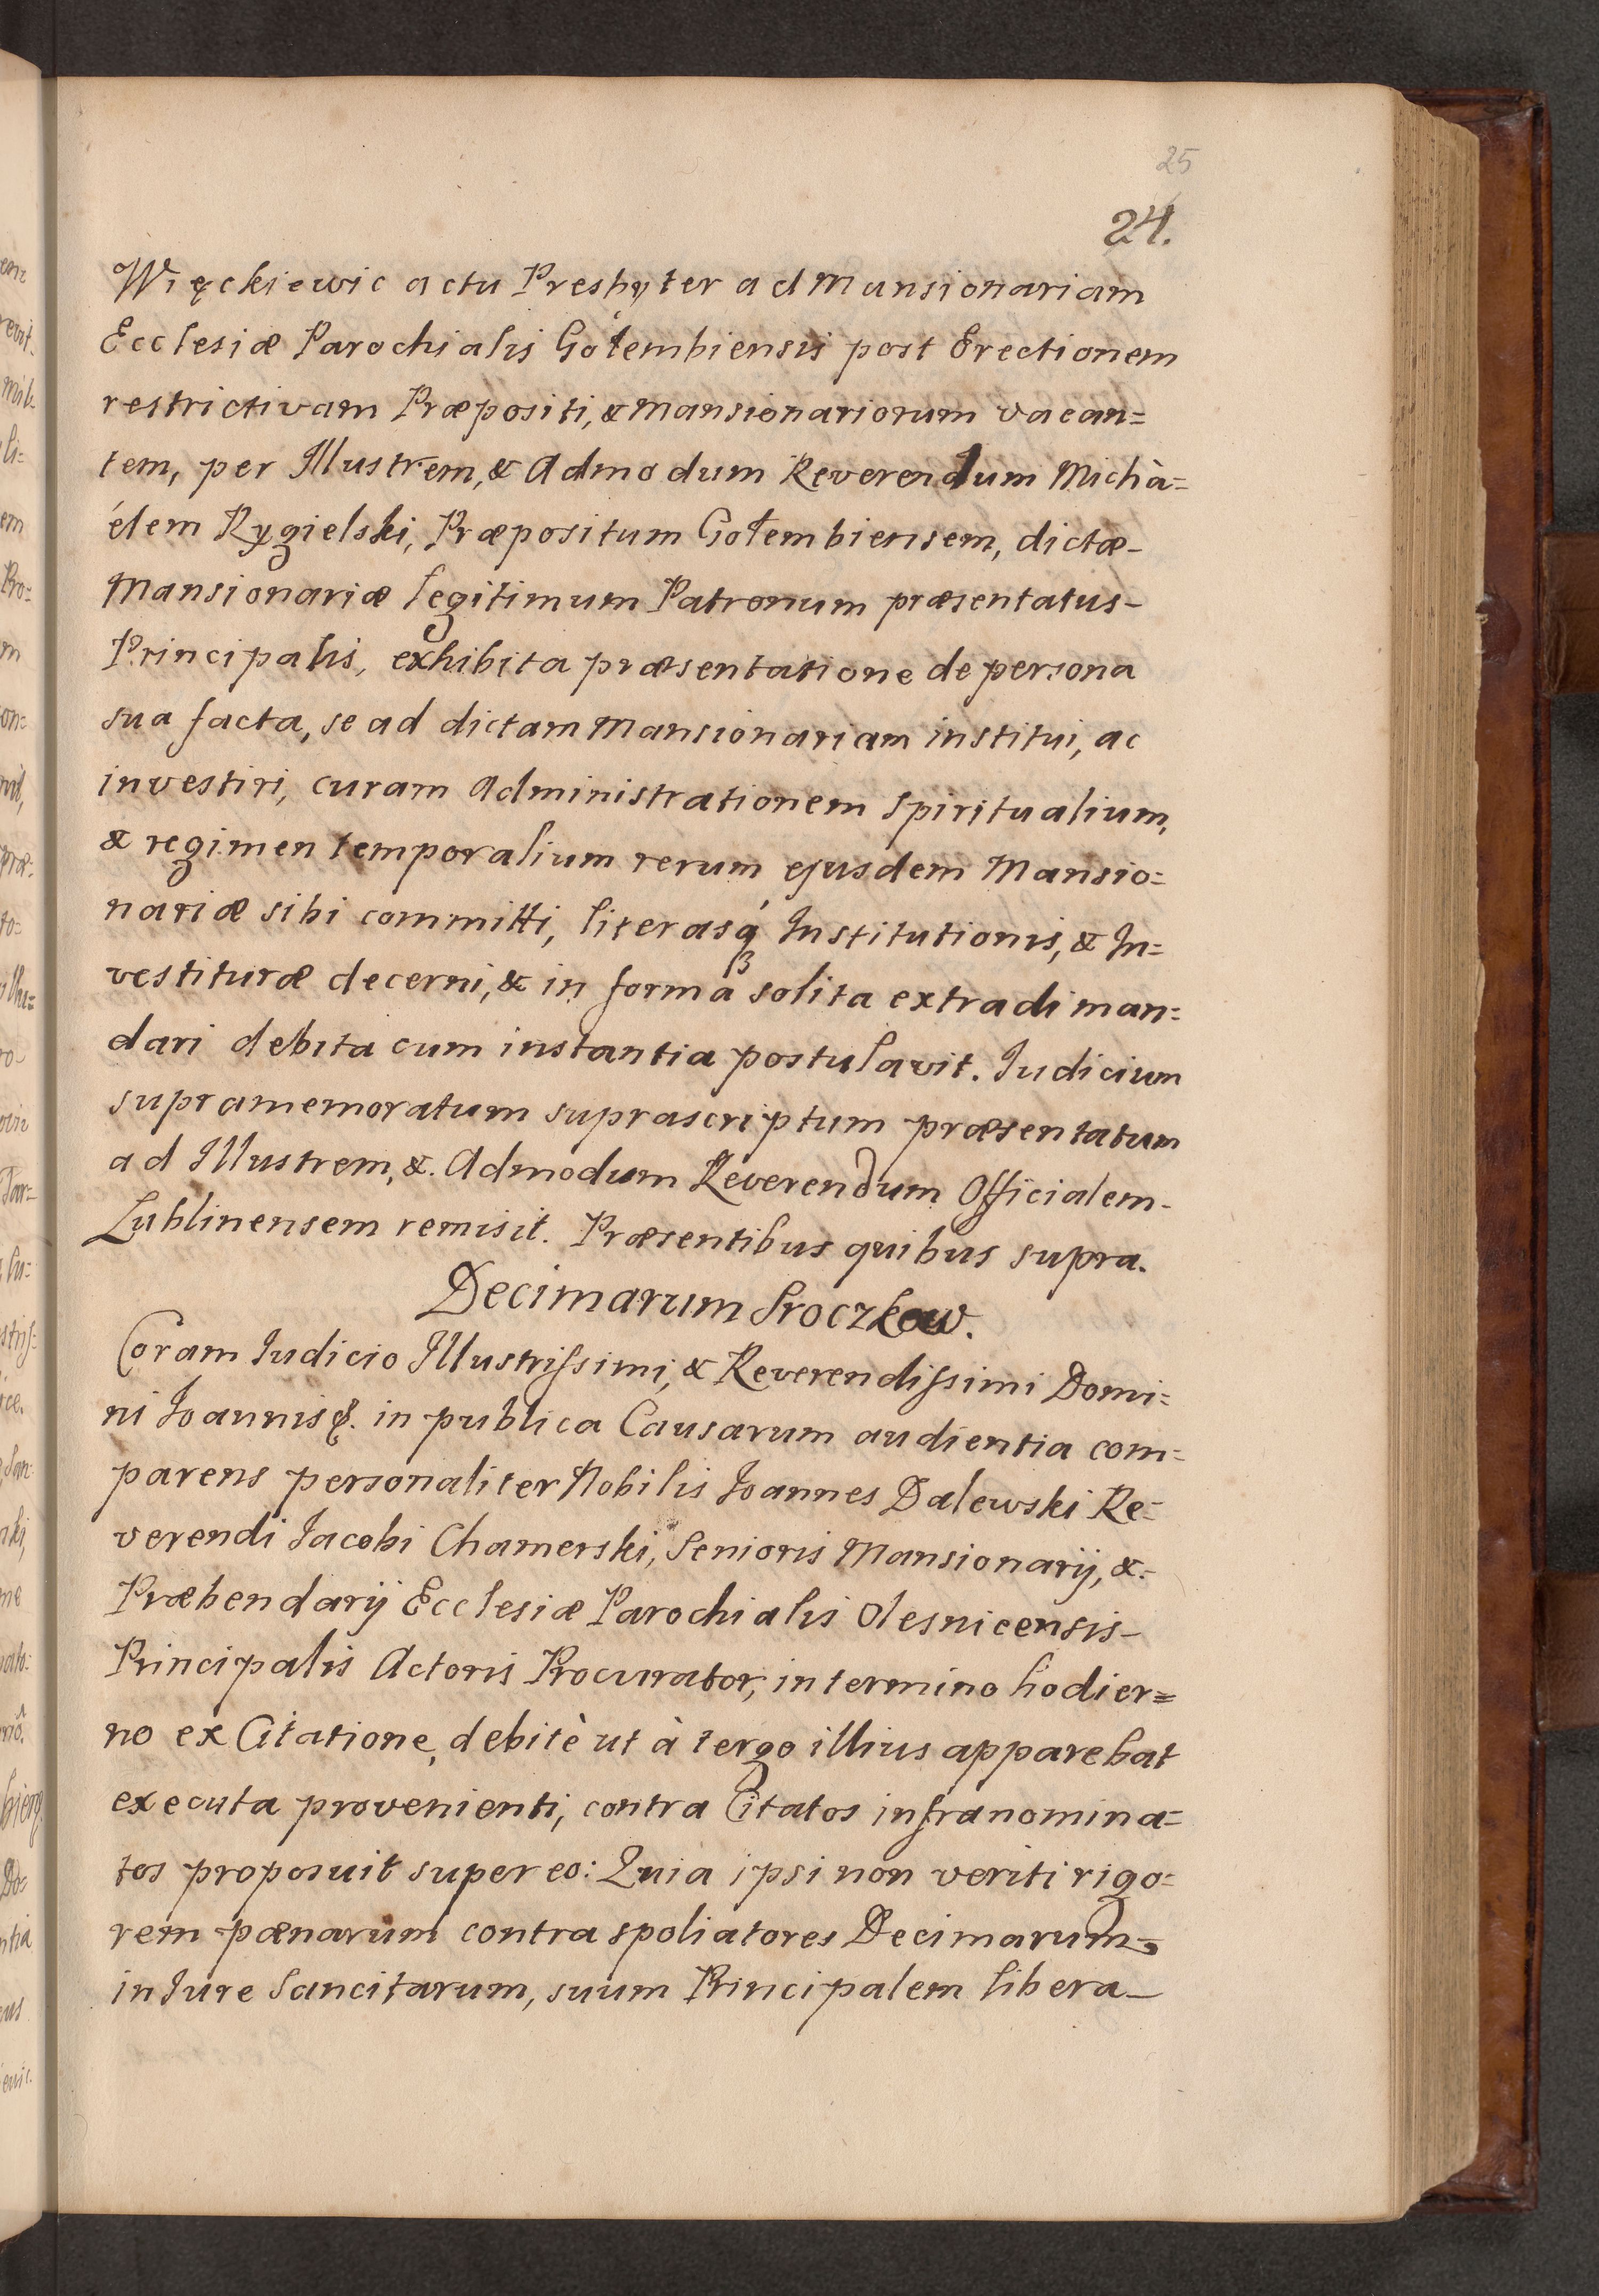 25
24.
Więckiewic actu Presbyter ad Mansionariam
Ecclesiæ Parochialis Gołembiensis post Erectionem
restrictivam Præpositi, & Mansionariorum vacan=
tem, per Illustrem, & Admodum Reverendum Michà=
élem Rygielski, Præpositum Gołembiensem, dictæ-
Mansionariæ legitimum Patronum præsentatus-
Principalis, exhibita præsentatione de persona
sua facta, se ad dictam Mansionariam institui, ac
investiri, curam Administrationem spiritualium,
& regimen temporalium rerum ejusdem Mansio=
nariæ sibi committi, literasq́ Institutionis, & In=
vestituræ decerni, & in forma solita extradi man=
dari debita cum instantia postulavit. Iudicium
supramemoratum suprascriptum præsentatum
ad Illustrem, &. Admodum Reverendum Officialem-
Lublinensem remisit. Præsentibus quibus supra.
Decimarum Sroczkow.
Coram Iudicio Illustrißimi, & Reverendißimi Domi=
ni Ioannis &. in publica Causarum audientia com=
parens personaliter Nobilis Ioannes Dalewski Re=
verendi Iacobi Chamerski, Senioris Mansionarij, &.-
Præbendarij Ecclesiæ Parochialis Olesnicensis-
Principalis Actoris Procurator, in termino hodier=
no ex Citatione, debitè ut à tergo illius apparebat
executa provenienti, contra Citatos infranomina=
tos proposuit super eo: Quia ipsi non veriti rigo=
rem pænarum contra spoliatores Decimarum-
in Iure Sancitarum, suum Principalem libera-